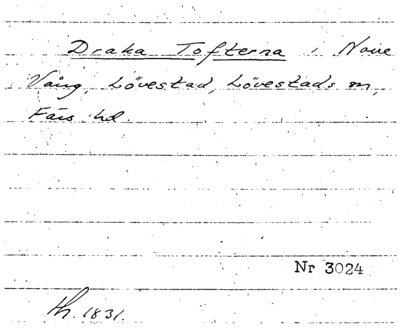 Draka Tofterna, i Norre
Vång, Lövestad, Lövestads sn,
Färs hd.
Nr 3024
th. 1831.